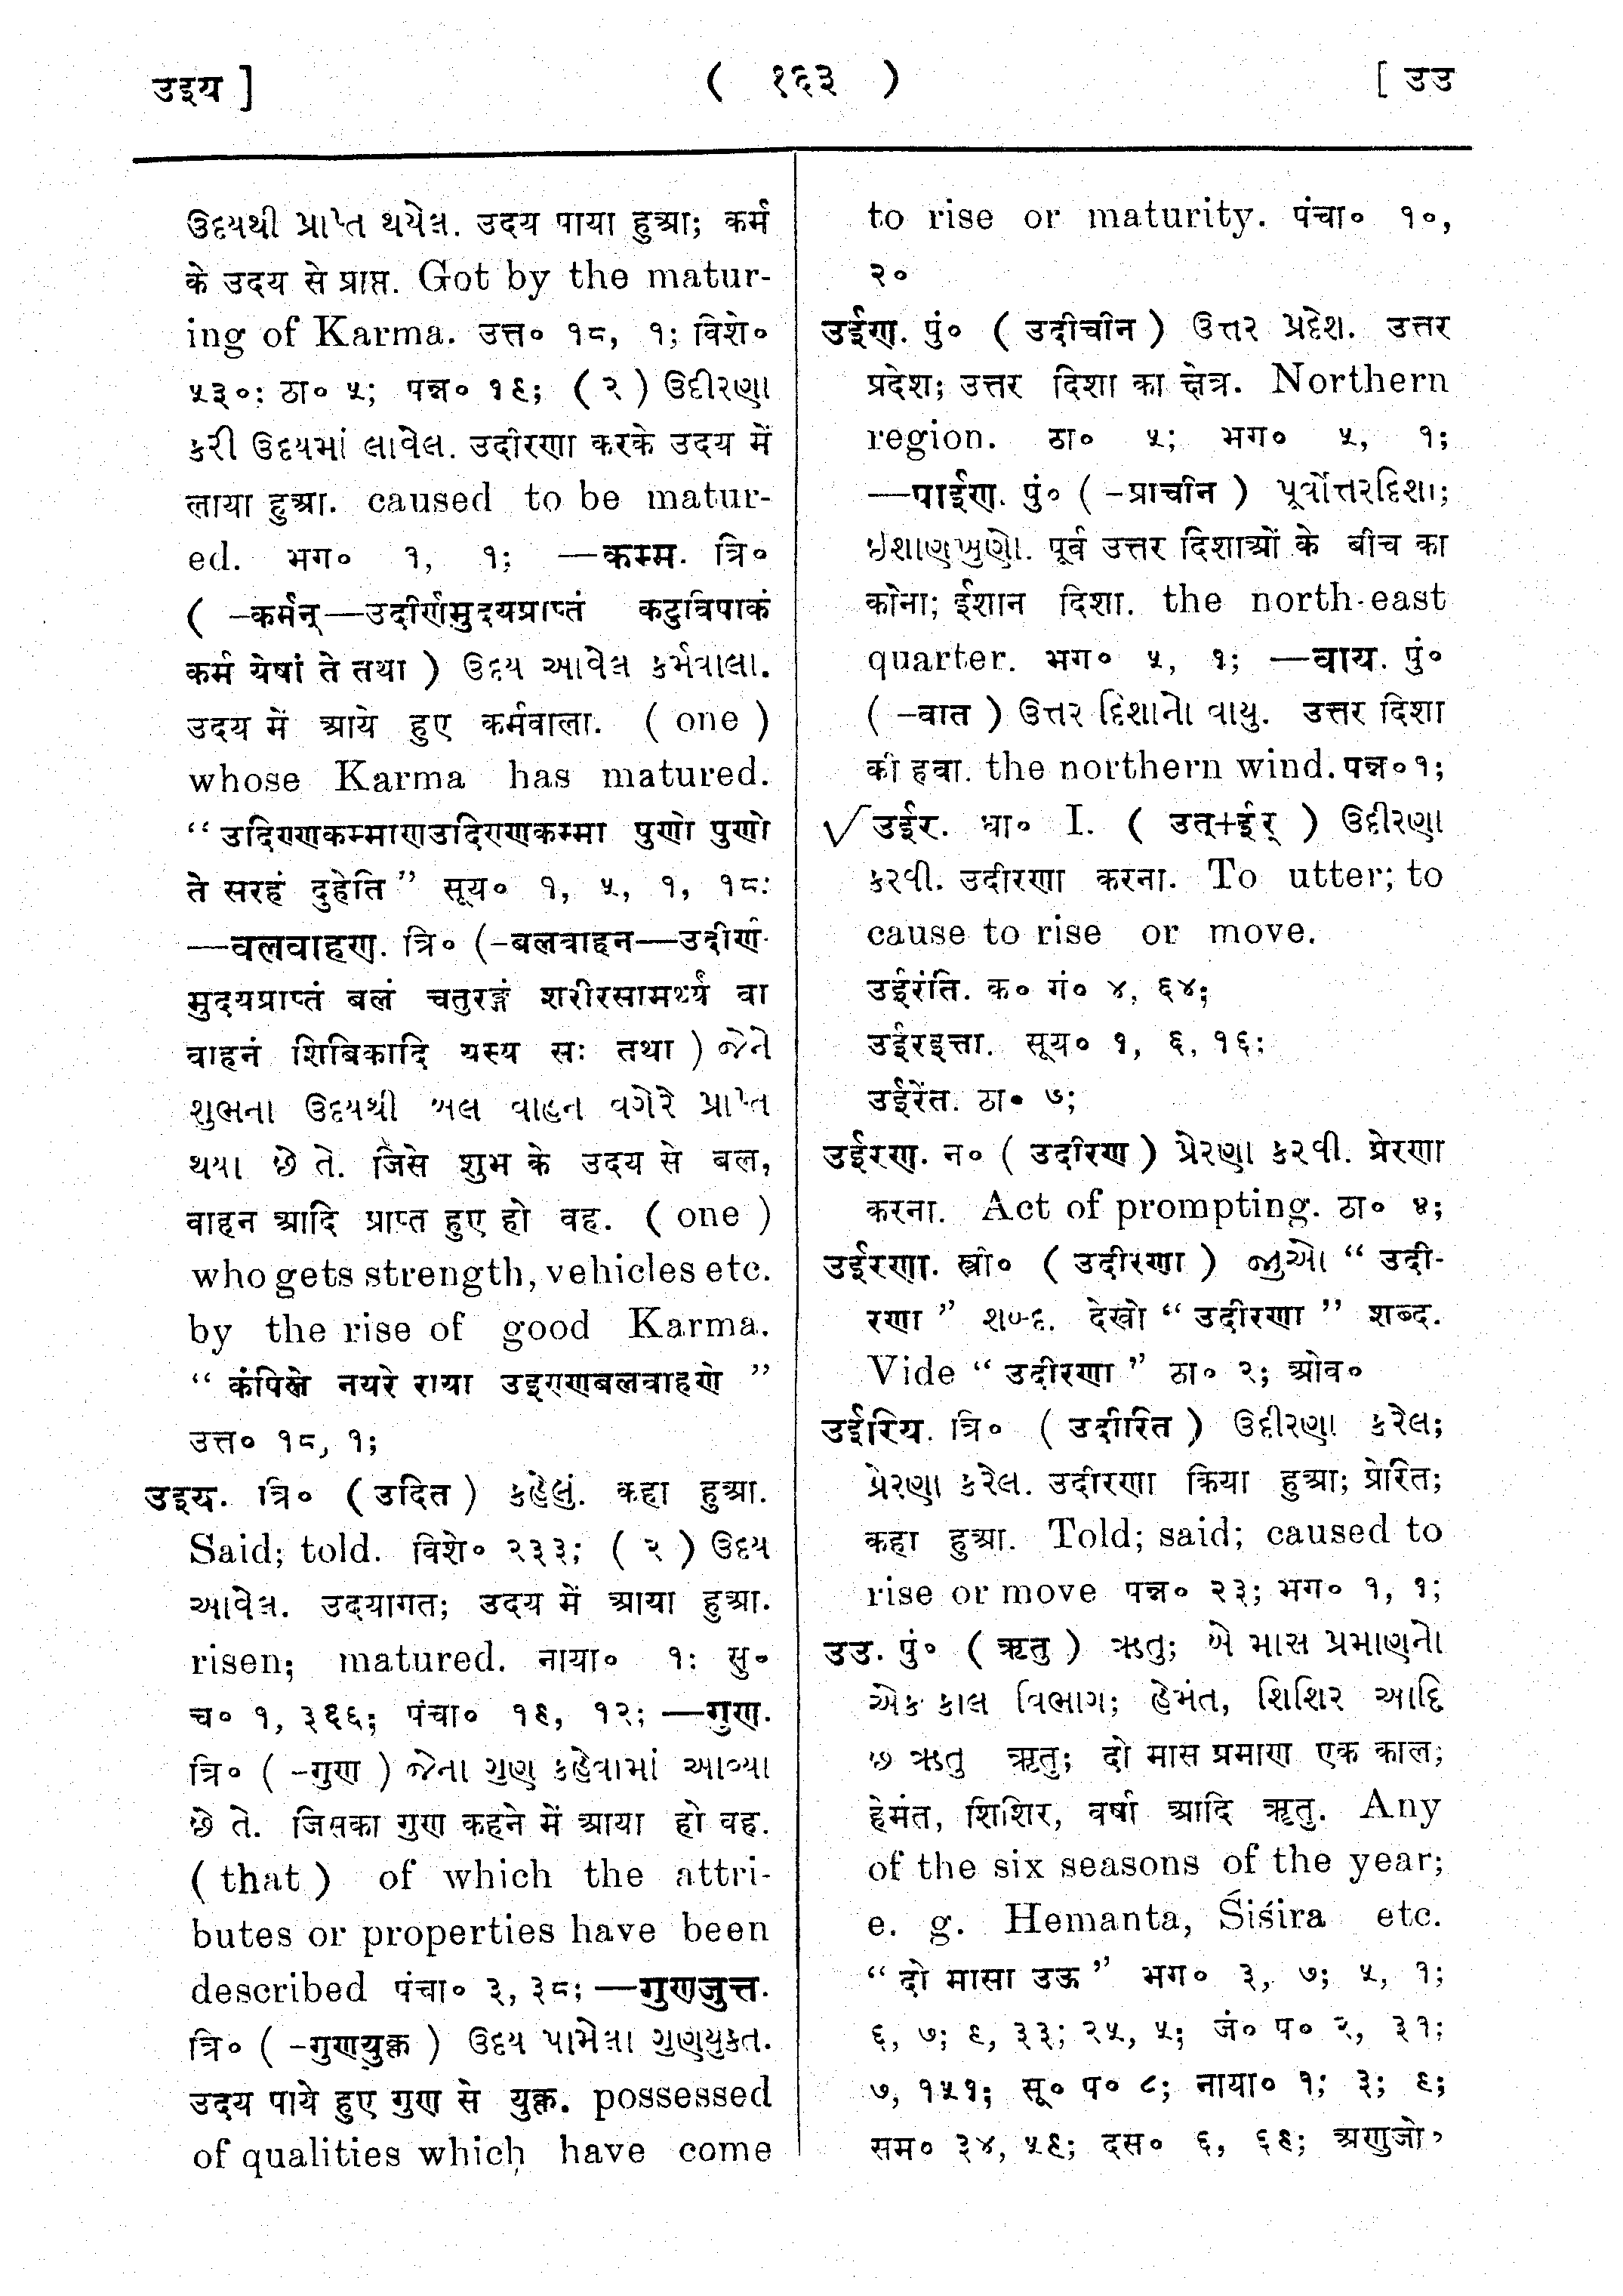 उइय ]
( १६३ )
[ उउ
ઉદયથી પ્રાપ્ત થયેલ. उदय पाया हुआ; कर्म
के उदय से प्राप्त. Got by the matur-
ing of Karma. उत्त० १८, १; विशे०
५३०; ठा० ५; पन्न० १६; ( २ ) ઉદીરણા
કરી ઉદયમાં લાવેલ. उदीरणा करके उदय में
लाया हुआ. caused to be matur-
ed. भग० १, १; —कम्म. त्रि०
( –कर्मन्—उदीर्णमुदयप्राप्तं कटुविपाकं
कर्म येषां ते तथा ) ઉદય આવેલ કર્મવાલા.
उदय में आये हुए कर्मवाला. ( one )
whose Karma has matured.
“ उदिण्णकम्माणउदिण्णकम्मा पुणो पुणो
ते सरहं दुहेति ” सूय० १, ५, १, १८;
—वलवाहण. त्रि० (–बलवाहन—उदीर्ण-
मुदयप्राप्तं बलं चतुरङ्गं शरीरसामर्थ्यं वा
वाहनं शिबिकादि यस्य सः तथा ) જેને
શુભના ઉદયથી બલ વાહન વગેરે પ્રાપ્ત
થયા છે તે. जिसे शुभ के उदय से बल,
वाहन आदि प्राप्त हुए हो वह. ( one )
who gets strength, vehicles etc.
by the rise of good Karma.
“ कंपिल्ले नयरे राया उइण्णबलवाहणे ”
उत्त० १८, १;
उइय. त्रि० ( उदित ) કહેલું. कहा हुआ.
Said; told. विशे० २३३; ( २ ) ઉદય
આવેલ. उदयागत; उदय में आया हुआ.
risen; matured. नाया० १; सु०
च० १, ३६६; पंचा० १६, १२; —गुण.
त्रि० ( –गुण ) જેના ગુણ કહેવામાં આવ્યા
છે તે. जिसका गुण कहने में आया हो वह.
( that ) of which the attri-
butes or properties have been
described पंचा० ३, ३८; —गुणजुत्त.
त्रि० ( –गुणयुक्त ) ઉદય પામેલા ગુણયુક્ત.
उदय पाये हुए गुण से युक्त. possessed
of qualities which have come
to rise or maturity. पंचा० १०,
२०
उईण. पुं० ( उदीचीन ) ઉત્તર પ્રદેશ. उत्तर
प्रदेश; उत्तर दिशा का क्षेत्र. Northern
region. ठा० ५; भग० ५, १;
—पाईण. पुं० ( –प्राचीन ) પૂર્વોત્તરદિશા;
ઇશાણખુણો. पूर्व उत्तर दिशाओं के बीच का
कोना; ईशान दिशा. the north-east
quarter. भग० ५, १; —वाय. पुं०
( –वात ) ઉત્તર દિશાનો વાયુ. उत्तर दिशा
की हवा. the northern wind. पन्न० १;
√ उईर. धा० I. ( उत्+ईर् ) ઉદીરણા
કરવી. उदीरणा करना. To utter; to
cause to rise or move.
उईरंति. क० गं० ४, ६४;
उईरइत्ता. सूय० १, ६, १६;
उईरेंत. ठा० ७;
उईरण. न० ( उदीरण ) પ્રેરણા કરવી. प्रेरणा
करना. Act of prompting. ठा० ४;
उईरणा. स्त्री० ( उदीरणा ) જુઓ “ उदी-
रणा ” શબ્દ. देखो “ उदीरणा ” शब्द.
Vide “ उदीरणा ” ठा० २; ओव०
उईरिय. त्रि० ( उदीरित ) ઉદીરણા કરેલ;
પ્રેરણા કરેલ. उदीरणा किया हुआ; प्रेरित;
कहा हुआ. Told; said; caused to
rise or move पन्न० २३; भग० १, १;
उउ. पुं० ( ऋतु ) ઋતુ; બે માસ પ્રમાણનો
એક કાલ વિભાગ; હેમંત, શિશિર આદિ
છ ઋતુ ऋतु; दो मास प्रमाण एक काल;
हेमंत, शिशिर, वर्षा आदि ऋतु. Any
of the six seasons of the year;
e. g. Hemanta, Śiśira etc.
“ दो मासा उऊ ” भग० ३, ७; ५, १;
६, ७; ६, ३३; २५, ५; जं० प० २, ३१;
७, १५१; सू० प० ८; नाया० १; ३; ६;
सम० ३४, ५६; दस० ६, ६६; अणुजो०